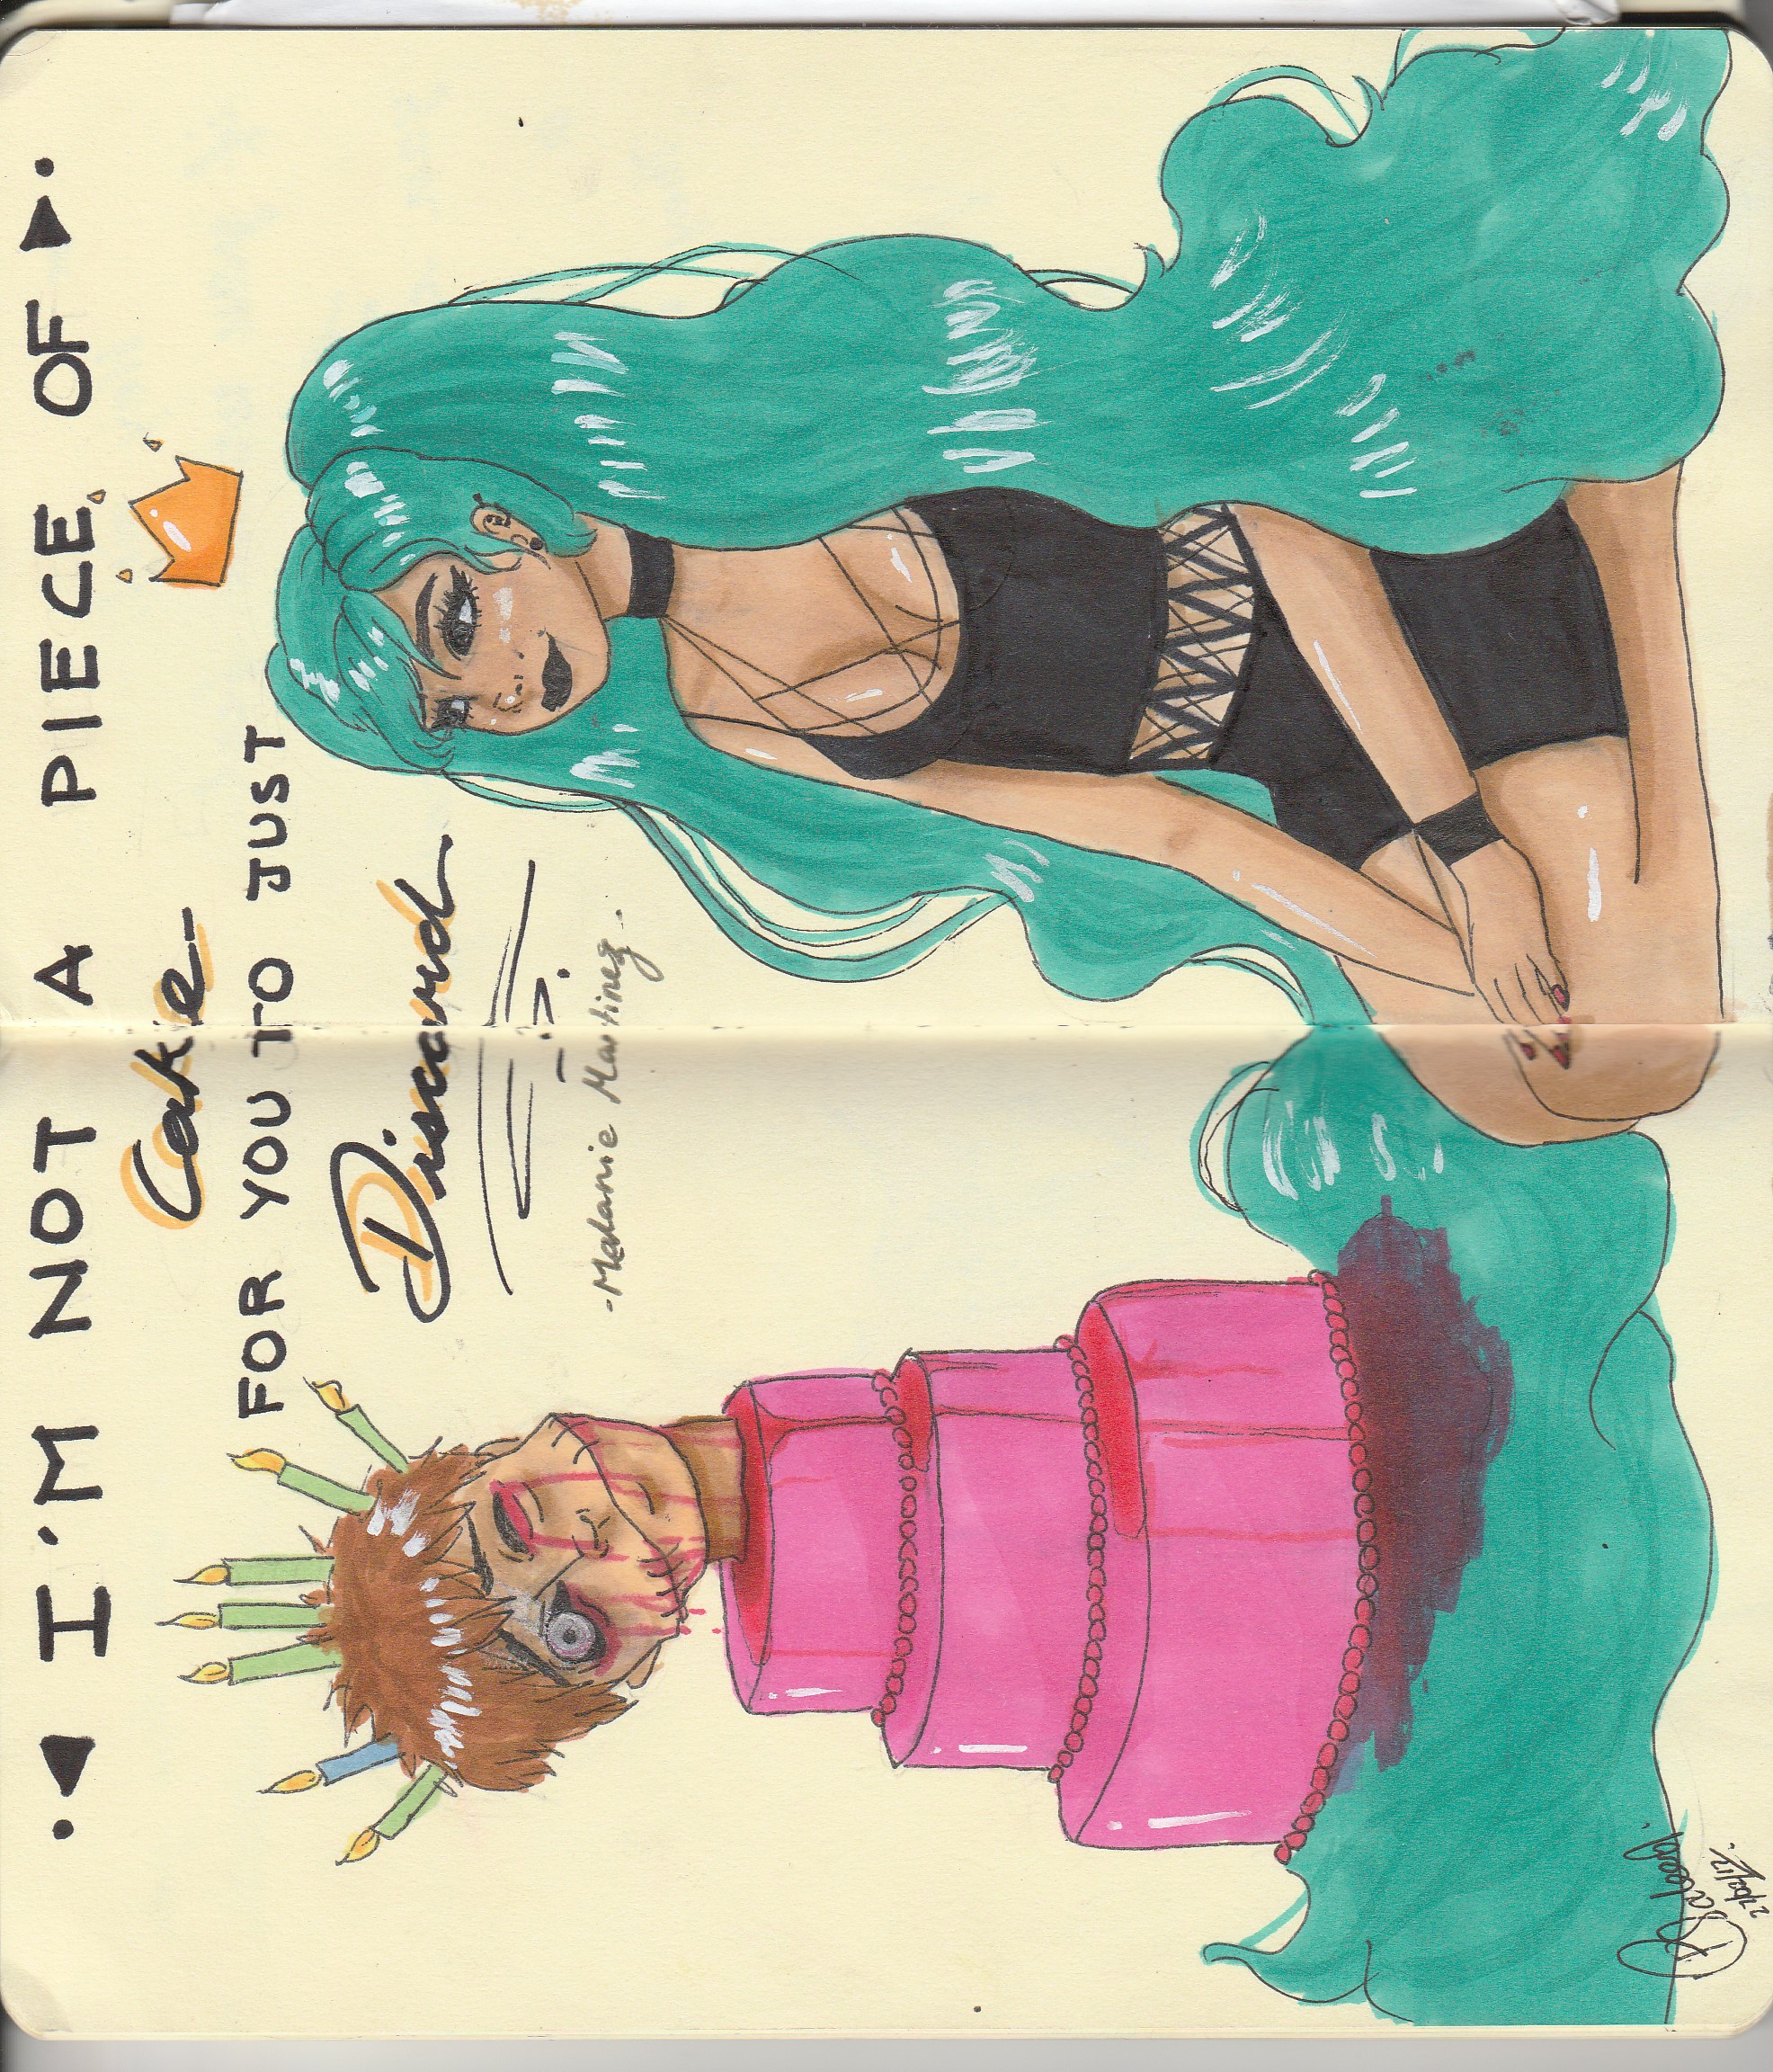 I'M NOT A PIECE OF
Cake-
FOR YOU TO JUST
Discard
-Melanie Martinez-
27/02/17